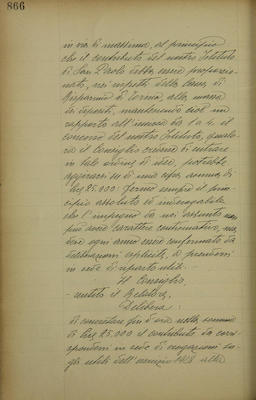 866
in via di massima, al principio
che il contributo del nostro Istituto
di San Paolo debba essere proporzio-
nato, nei rispetti della Cassa di
Risparmio di Torino, alla massa
dei depositi, mantenendo cioè un
rapporto all'incirca da 1 a 4, il
concorso del nostro Istituto, qualo-
ra il Consiglio creda di entrare
in tale ordine di idee, potrebbe
aggirarsi su di una cifra annua di
Lire 25.000 fermo sempre il prin-
cipio assoluto ed inderogabile
che l'impegno da noi assunto non
può avere carattere continuativo, ma
deve ogni anno essere confermato da
deliberazioni esplicite, da prendersi
in sede di riparto utili.
Il Consiglio,
- udito il Relatore,
Delibera:
di concretare fin d'ora nella somma
di Lire 25.000 il contributo da corri-
spondersi in sede di erogazioni su-
gli utili dell'esercizio